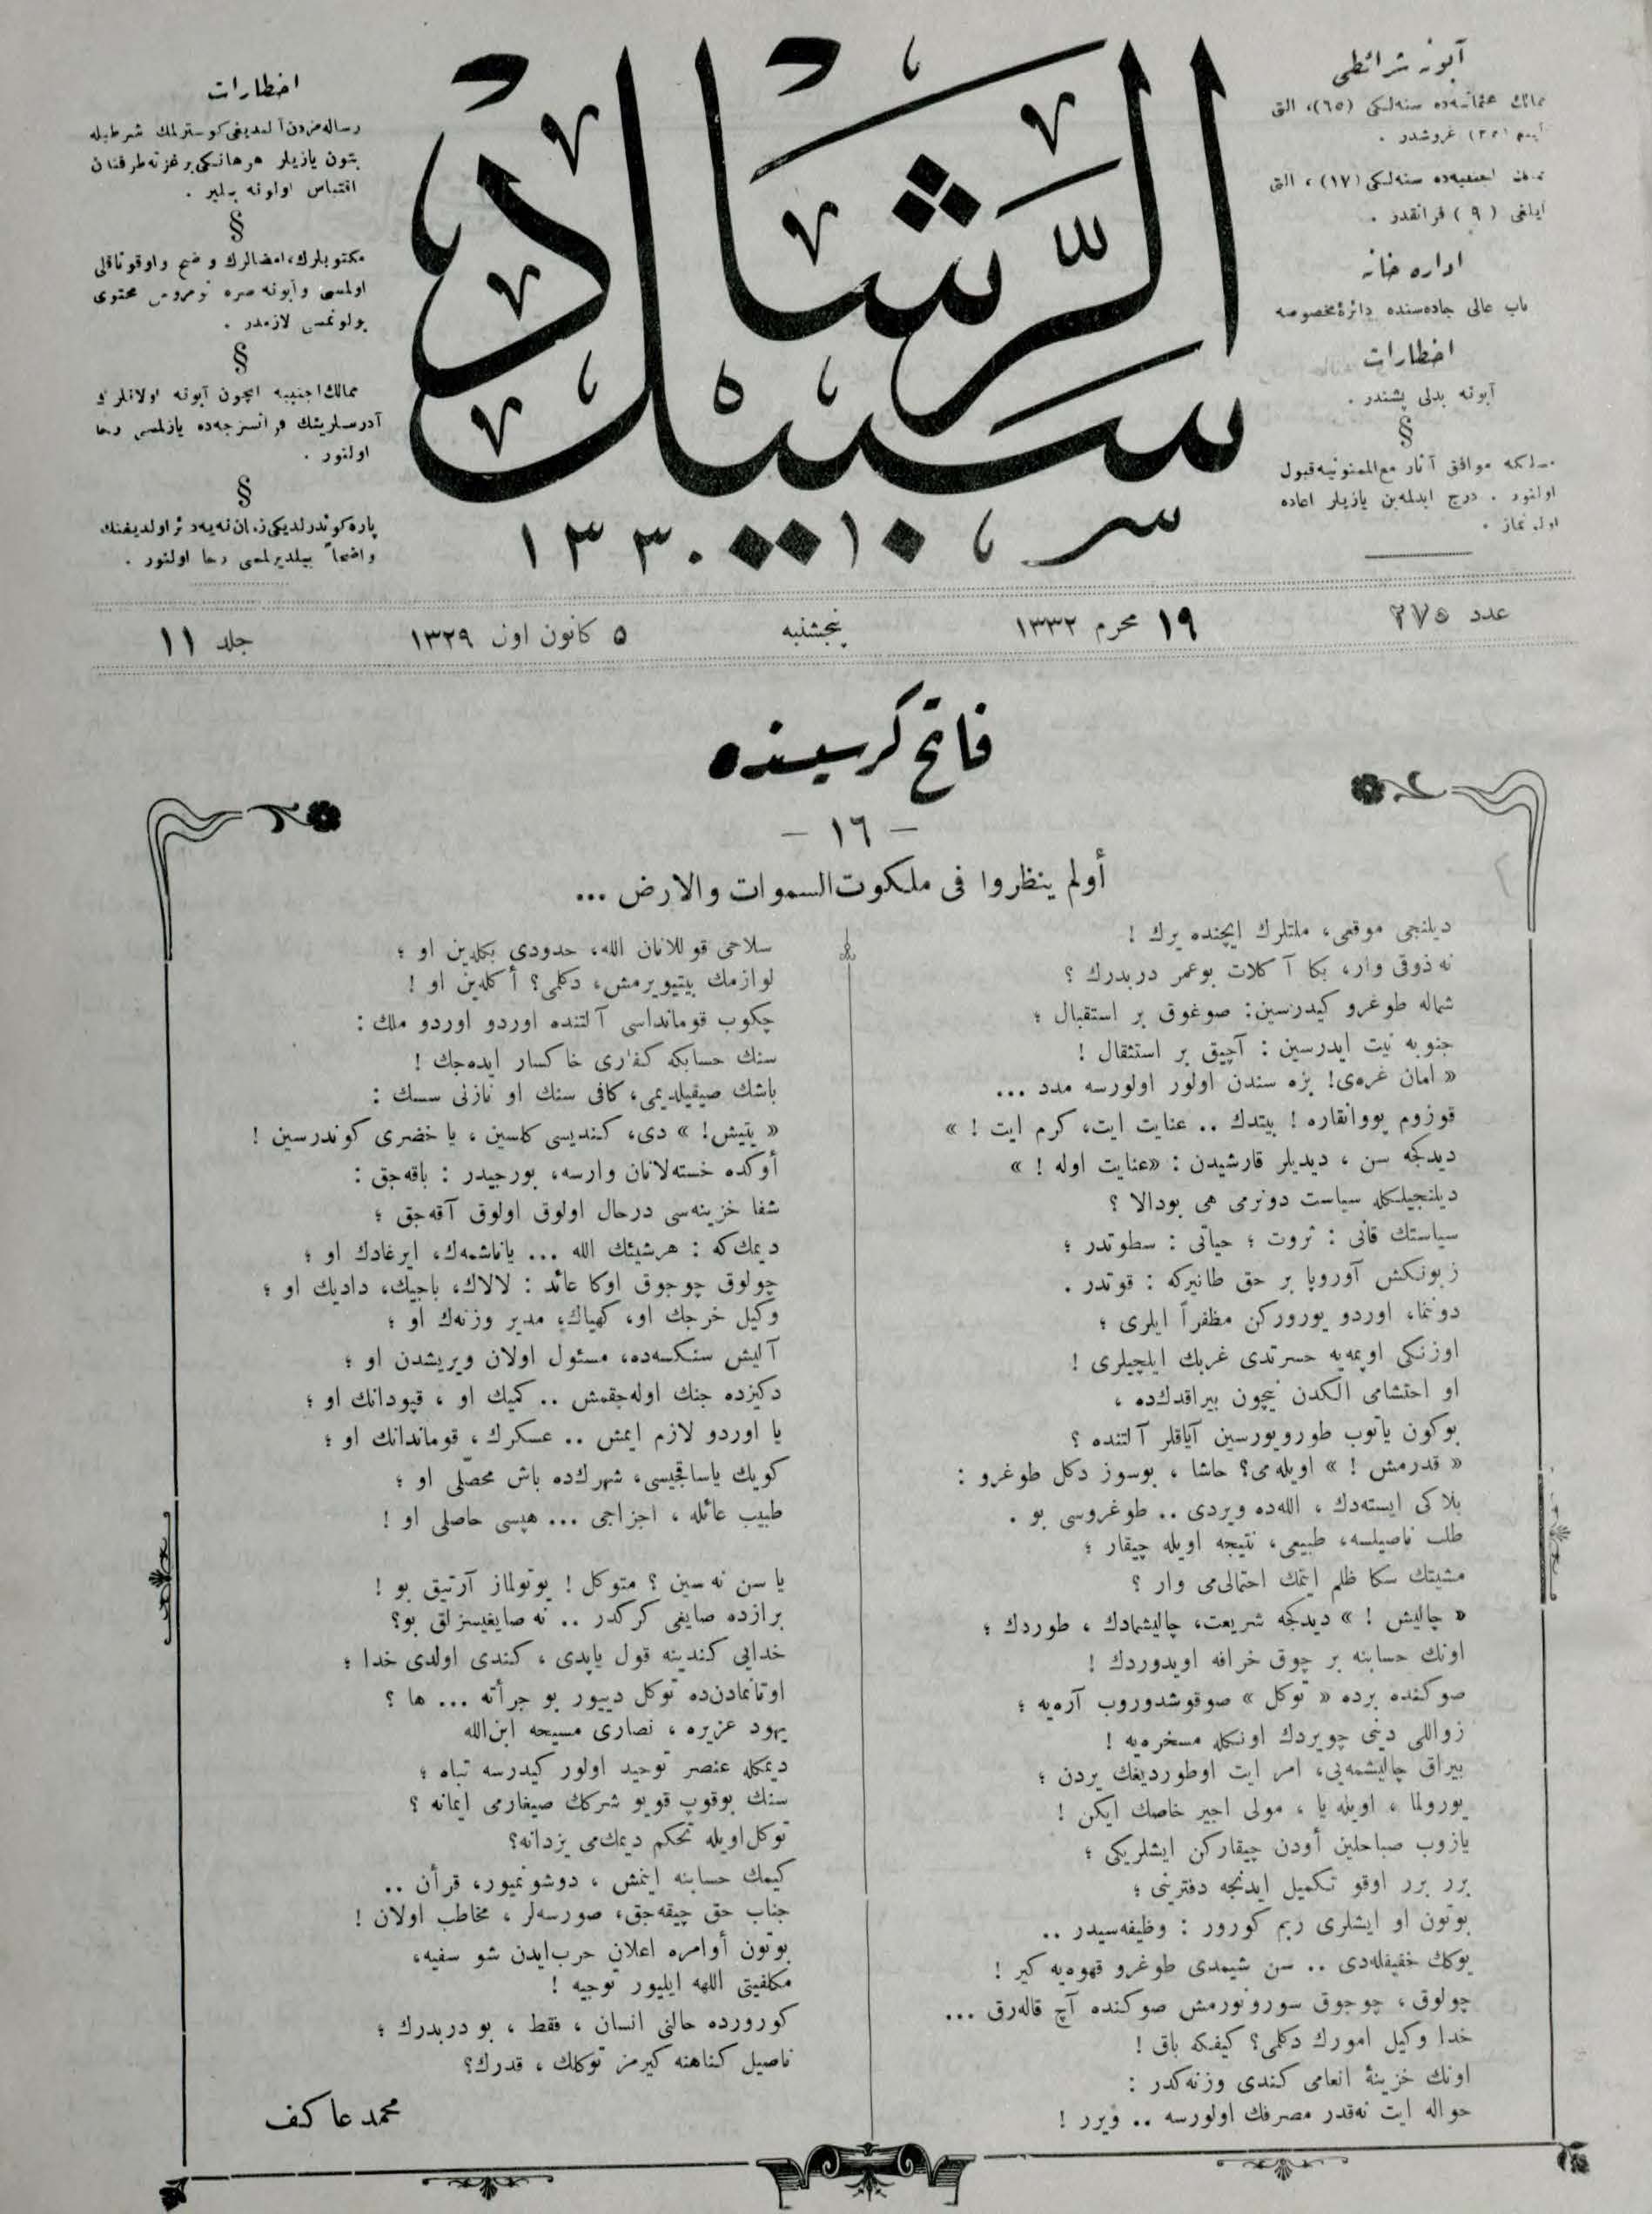 آبونه شرائطی
ممالك عثمانیه‌ده سنه‌لكی (٦٥)، التی
غروشدر .
اجنبیه‌ده سنه‌لكی (١٧)، التی
ایلغی (٩) فرانقدر .
اداره خانه
باب عالی جاده‌سنده دائرهٔ مخصوصه
اخطارات
آبونه بدلی پشندر .
§
مسلكه موافق آثار مع الممنونیه قبول
اولنور . درج ایدلمه‌ین یازیلر اعاده
اولنماز .
سبیل الرشاد
١٣٣٠
اخطارات
رساله‌مزدن آلندیغی كوسترلمك شرطیله
بتون یازیلر هرهانكی بر غزته طرفندن
اقتباس اولونه بیلیر .
§
مكتوبلرك، امضالرك واضح و اوقوناقلی
اولمسی و آبونه صره نومروسی محتوی
بولونمسی لازمدر .
§
ممالك اجنبیه ایچون آبونه اولانلرك
آدرسلرینك فرانسزجه‌ده یازلمسی رجا
اولنور .
§
پاره كوندرلدیكی زمان نه‌یه دائر اولدیغنك
واضحاً بیلدیرلمسی رجا اولنور .
عدد ٢٧٥
١٩ محرم ١٣٣٢
پنجشنبه
٥ كانون اول ١٣٢٩
جلد ١١
فاتح كرسیسنده
— ١٦ —
أولم ینظروا فی ملكوت السموات والارض ...
دیلنجی موقعی، ملتلرك ایچنده یرك !
نه ذوقی وار، بكا آكلات بو عمر دربدرك ؟
شماله طوغرو كیدرسین: صوغوق بر استقبال ؛
جنوبه نیت ایدرسین : آچیق بر استثقال !
« امان غره‌ی! بزه سندن اولور اولورسه مدد ...
قوزوم پووانقاره ! بیتدك .. عنایت ایت، كرم ایت ! »
دیدكجه سن ، دیدیلر قارشیدن : «عنایت اوله ! »
دیلنجیلكله سیاست دونرمی هی بودالا ؟
سیاستك قانی : ثروت ؛ حیاتی : سطوتدر ؛
زبونكش آوروپا بر حق طانیركه : قوتدر .
دوننما، اوردو یوروركن مظفراً ایلری ؛
اوزنكی اوپمه‌یه حسرتدی غربك ایلچیلری !
او احتشامی الكدن نیچون بیراقدك‌ده ،
بوكون یاتوب طورویورسین آیاقلر آلتنده ؟
« قدرمش ! » اویله‌می؟ حاشا ، بوسوز دكل طوغرو :
بلاكی ایسته‌دك ، الله‌ده ویردی .. طوغروسی بو .
طلب ناصیلسه، طبیعی، نتیجه اویله چیقار ؛
مشیتك سكا ظلم ایتمك احتمالی‌می وار ؟
« چالیش ! » دیدكجه شریعت، چالیشمادك ، طوردك ؛
اونك حسابنه بر چوق خرافه اویدوردك !
صوكنده برده « توكل » صوقوشدوروب آره‌یه ؛
زواللی دینی چویردك اونكله مسخره‌یه !
بیراق چالیشمه‌یی، امر ایت اوطوردیغك یردن ؛
یورولما ، اویله یا ، مولی اجیر خاصك ایكن !
یازوب صباحلین أودن چیقاركن ایشلریكی ؛
برر برر اوقو تكمیل ایدنجه دفترینی ؛
بوتون او ایشلری ربم كورور : وظیفه‌سیدر ..
یوكك خفیفله‌دی .. سن شیمدی طوغرو قهوه‌یه كیر !
چولوق ، چوجوق سورونورمش صوكنده آچ قاله‌رق ...
خدا وكیل امورك دكلمی؟ كیفكه باق !
اونك خزینهٔ انعامی كندی وزنه‌كدر :
حواله ایت نه‌قدر مصرفك اولورسه .. ویرر !
سلاحی قوللانان الله، حدودی بكله‌ین او ؛
لوازمك بیتیویرمش، دكلمی؟ أكله‌ین او !
چكوب قومانداسی آلتنده اوردو اوردو ملك :
سنك حسابكه كفاری خاكسار ایده‌جك !
باشك صیقیلدیمی، كافی سنك او نازلی سسك :
« یتیش! » دی، كندیسی كلسین ، یا خضری كوندرسین !
أوكده خسته‌لانان وارسه، بورجیدر : باقه‌جق :
شفا خزینه‌سی درحال اولوق اولوق آقه‌جق ؛
دیمك‌كه : هرشیئك الله ... یاناشمه‌ك، ایرغادك او ؛
چولوق چوجوق اوكا عائد : لالاك، باجیك، دادیك او ؛
وكیل خرجك او، كهیاك، مدیر وزنه‌ك او ؛
آلیش سنكسه‌ده، مسئول اولان ویریشدن او ؛
دكیزده جنك اوله‌جقمش .. كمیك او ، قپودانك او ؛
یا اوردو لازم ایمش .. عسكرك ، قوماندانك او ؛
كویك یاساقجیسی، شهرك‌ده باش محصّلی او ؛
طبیب عائله ، اجزاجی ... هپسی حاصلی او !
یا سن نه‌سین ؟ متوكل ! یوتولماز آرتیق بو !
برازده صایغی كركدر .. نه صایغیسزلق بو؟
خدایی كندینه قول یاپدی ، كندی اولدی خدا ؛
اوتانمادن‌ده توكل دییور بو جرأته ... ها ؟
یهود عزیره ، نصاری مسیحه ابن‌الله
دیمكله عنصر توحید اولور كیدرسه تباه ؛
سنك بو قوپ قویو شركك صیغارمی ایمانه ؟
توكل اویله تحكم دیمك‌می یزدانه؟
كیمك حسابنه اینمش ، دوشونمیور، قرأن ..
جناب حق چیقه‌جق، صورسه‌لر ، مخاطب اولان !
بوتون أوامره اعلان حرب ایدن شو سفیه،
مكلفیتی اللهه ایلیور توجیه !
كورورده حالنی انسان ، فقط ، بو دربدرك ؛
ناصیل كناهنه كیرمز توكلك ، قدرك؟
محمد عاكف